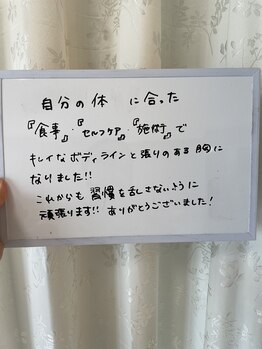 自分の体 に合った
『食事』・『セルフケア』『施術』で
キレイなボディラインと張りのある胸に
なりました!!
これからも 習慣を乱さないように
頑張ります!! ありがとうございました!